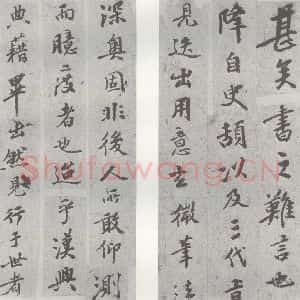 甚矣書之難言也
降自史頡以及三代
見迭出用意
微筆法
深奧固非後人所敢仰測
而臆度者也迨乎漢興
典籍畢出
見行于世者
Shufawang.CN